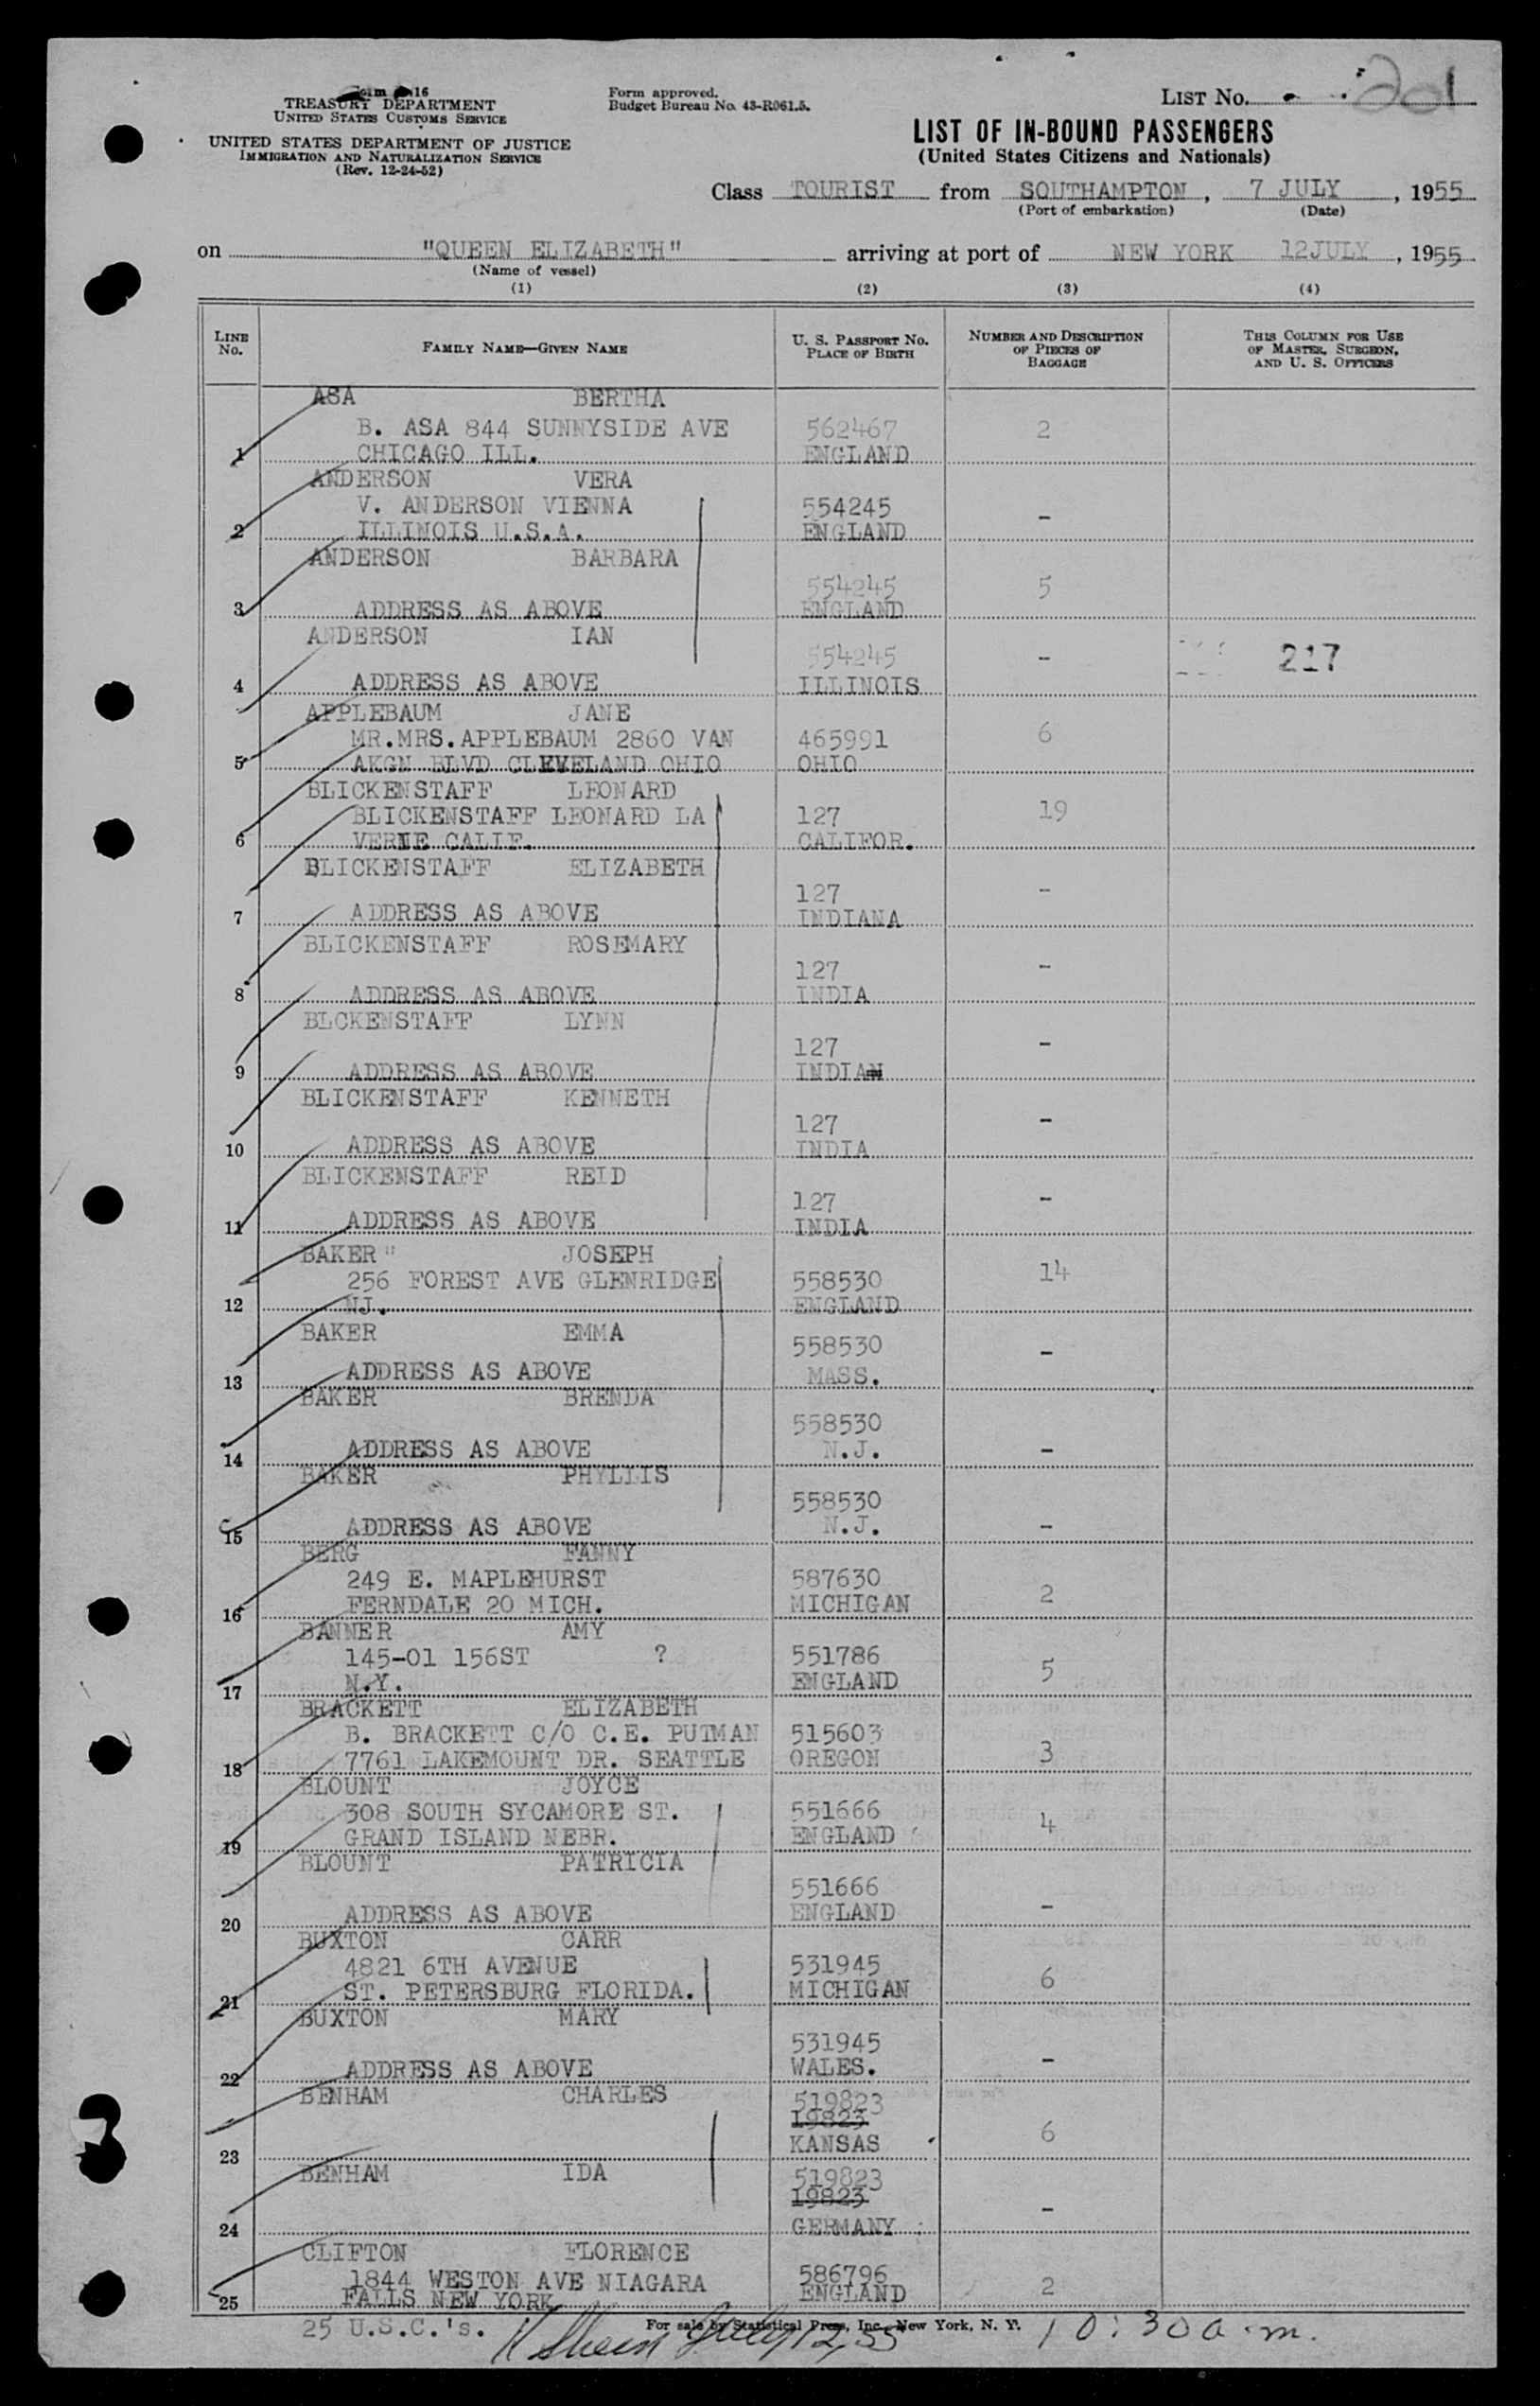 Form 16
TREASURY DEPARTMENT
UNITED STATES CUSTOMS SERVICE
UNITED STATES DEPARTMENT OF JUSTICE
IMMIGRATION AND NATURALIZATION SERVICE
(Rev. 12-24-52)
Form approved.
Budget Bureau No. 43-R061.5.
LIST No. 201
LIST OF IN-BOUND PASSENGERS
(United States Citizens and Nationals)
Class TOURIST from SOUTHAMPTON, 7 JULY, 1955
(Port of embarkation) (Date)
on "QUEEN ELIZABETH" arriving at port of NEW YORK 12JULY, 1955
(Name of vessel)
(1) (2) (3) (4)
LINE No. FAMILY NAME—GIVEN NAME U. S. PASSPORT No. PLACE OF BIRTH NUMBER AND DESCRIPTION OF PIECES OF BAGGAGE THIS COLUMN FOR USE OF MASTER, SURGEON, AND U. S. OFFICERS
ASA BERTHA
B. ASA 844 SUNNYSIDE AVE 562467 2
1 CHICAGO ILL. ENGLAND
ANDERSON VERA
V. ANDERSON VIENNA 554245 -
2 ILLINOIS U.S.A. ENGLAND
ANDERSON BARBARA
554245 5
3 ADDRESS AS ABOVE ENGLAND
ANDERSON IAN
554245 - 217
4 ADDRESS AS ABOVE ILLINOIS
APPLEBAUM JANE
MR.MRS.APPLEBAUM 2860 VAN 465991 6
5 AKGN BLVD CLEVELAND OHIO OHIO
BLICKENSTAFF LEONARD
BLICKENSTAFF LEONARD LA 127 19
6 VERNE CALIF. CALIFOR.
BLICKENSTAFF ELIZABETH
127 -
7 ADDRESS AS ABOVE INDIANA
BLICKENSTAFF ROSEMARY
127 -
8 ADDRESS AS ABOVE INDIA
BLCKENSTAFF LYNN
127 -
9 ADDRESS AS ABOVE INDIA
BLICKENSTAFF KENNETH
127 -
10 ADDRESS AS ABOVE INDIA
BLICKENSTAFF REID
127 -
11 ADDRESS AS ABOVE INDIA
BAKER" JOSEPH
256 FOREST AVE GLENRIDGE 558530 14
12 NJ. ENGLAND
BAKER EMMA
558530 -
13 ADDRESS AS ABOVE MASS.
BAKER BRENDA
558530
14 ADDRESS AS ABOVE N.J. -
BAKER PHYLLIS
558530
15 ADDRESS AS ABOVE N.J. -
BERG FANNY
249 E. MAPLEHURST 587630 2
16 FERNDALE 20 MICH. MICHIGAN
BANNER AMY
145-01 156ST ? 551786 5
17 N.Y. ENGLAND
BRACKETT ELIZABETH
B. BRACKETT C/O C.E. PUTMAN 515603 3
18 7761 LAKEMOUNT DR. SEATTLE OREGON
BLOUNT JOYCE
308 SOUTH SYCAMORE ST. 551666 4
19 GRAND ISLAND NEBR. ENGLAND
BLOUNT PATRICIA
551666 -
20 ADDRESS AS ABOVE ENGLAND
BUXTON CARR
4821 6TH AVENUE 531945 6
21 ST. PETERSBURG FLORIDA. MICHIGAN
BUXTON MARY
531945 -
22 ADDRESS AS ABOVE WALES.
BENHAM CHARLES 519823
19823 6
23 KANSAS
BENHAM IDA 519823
19823 -
24 GERMANY
CLIFTON FLORENCE
1844 WESTON AVE NIAGARA 586796 2
25 FALLS NEW YORK ENGLAND
25 U.S.C.'s. July 12, 55 10:30 a.m.
For sale by Statistical Press, Inc., New York, N. Y.